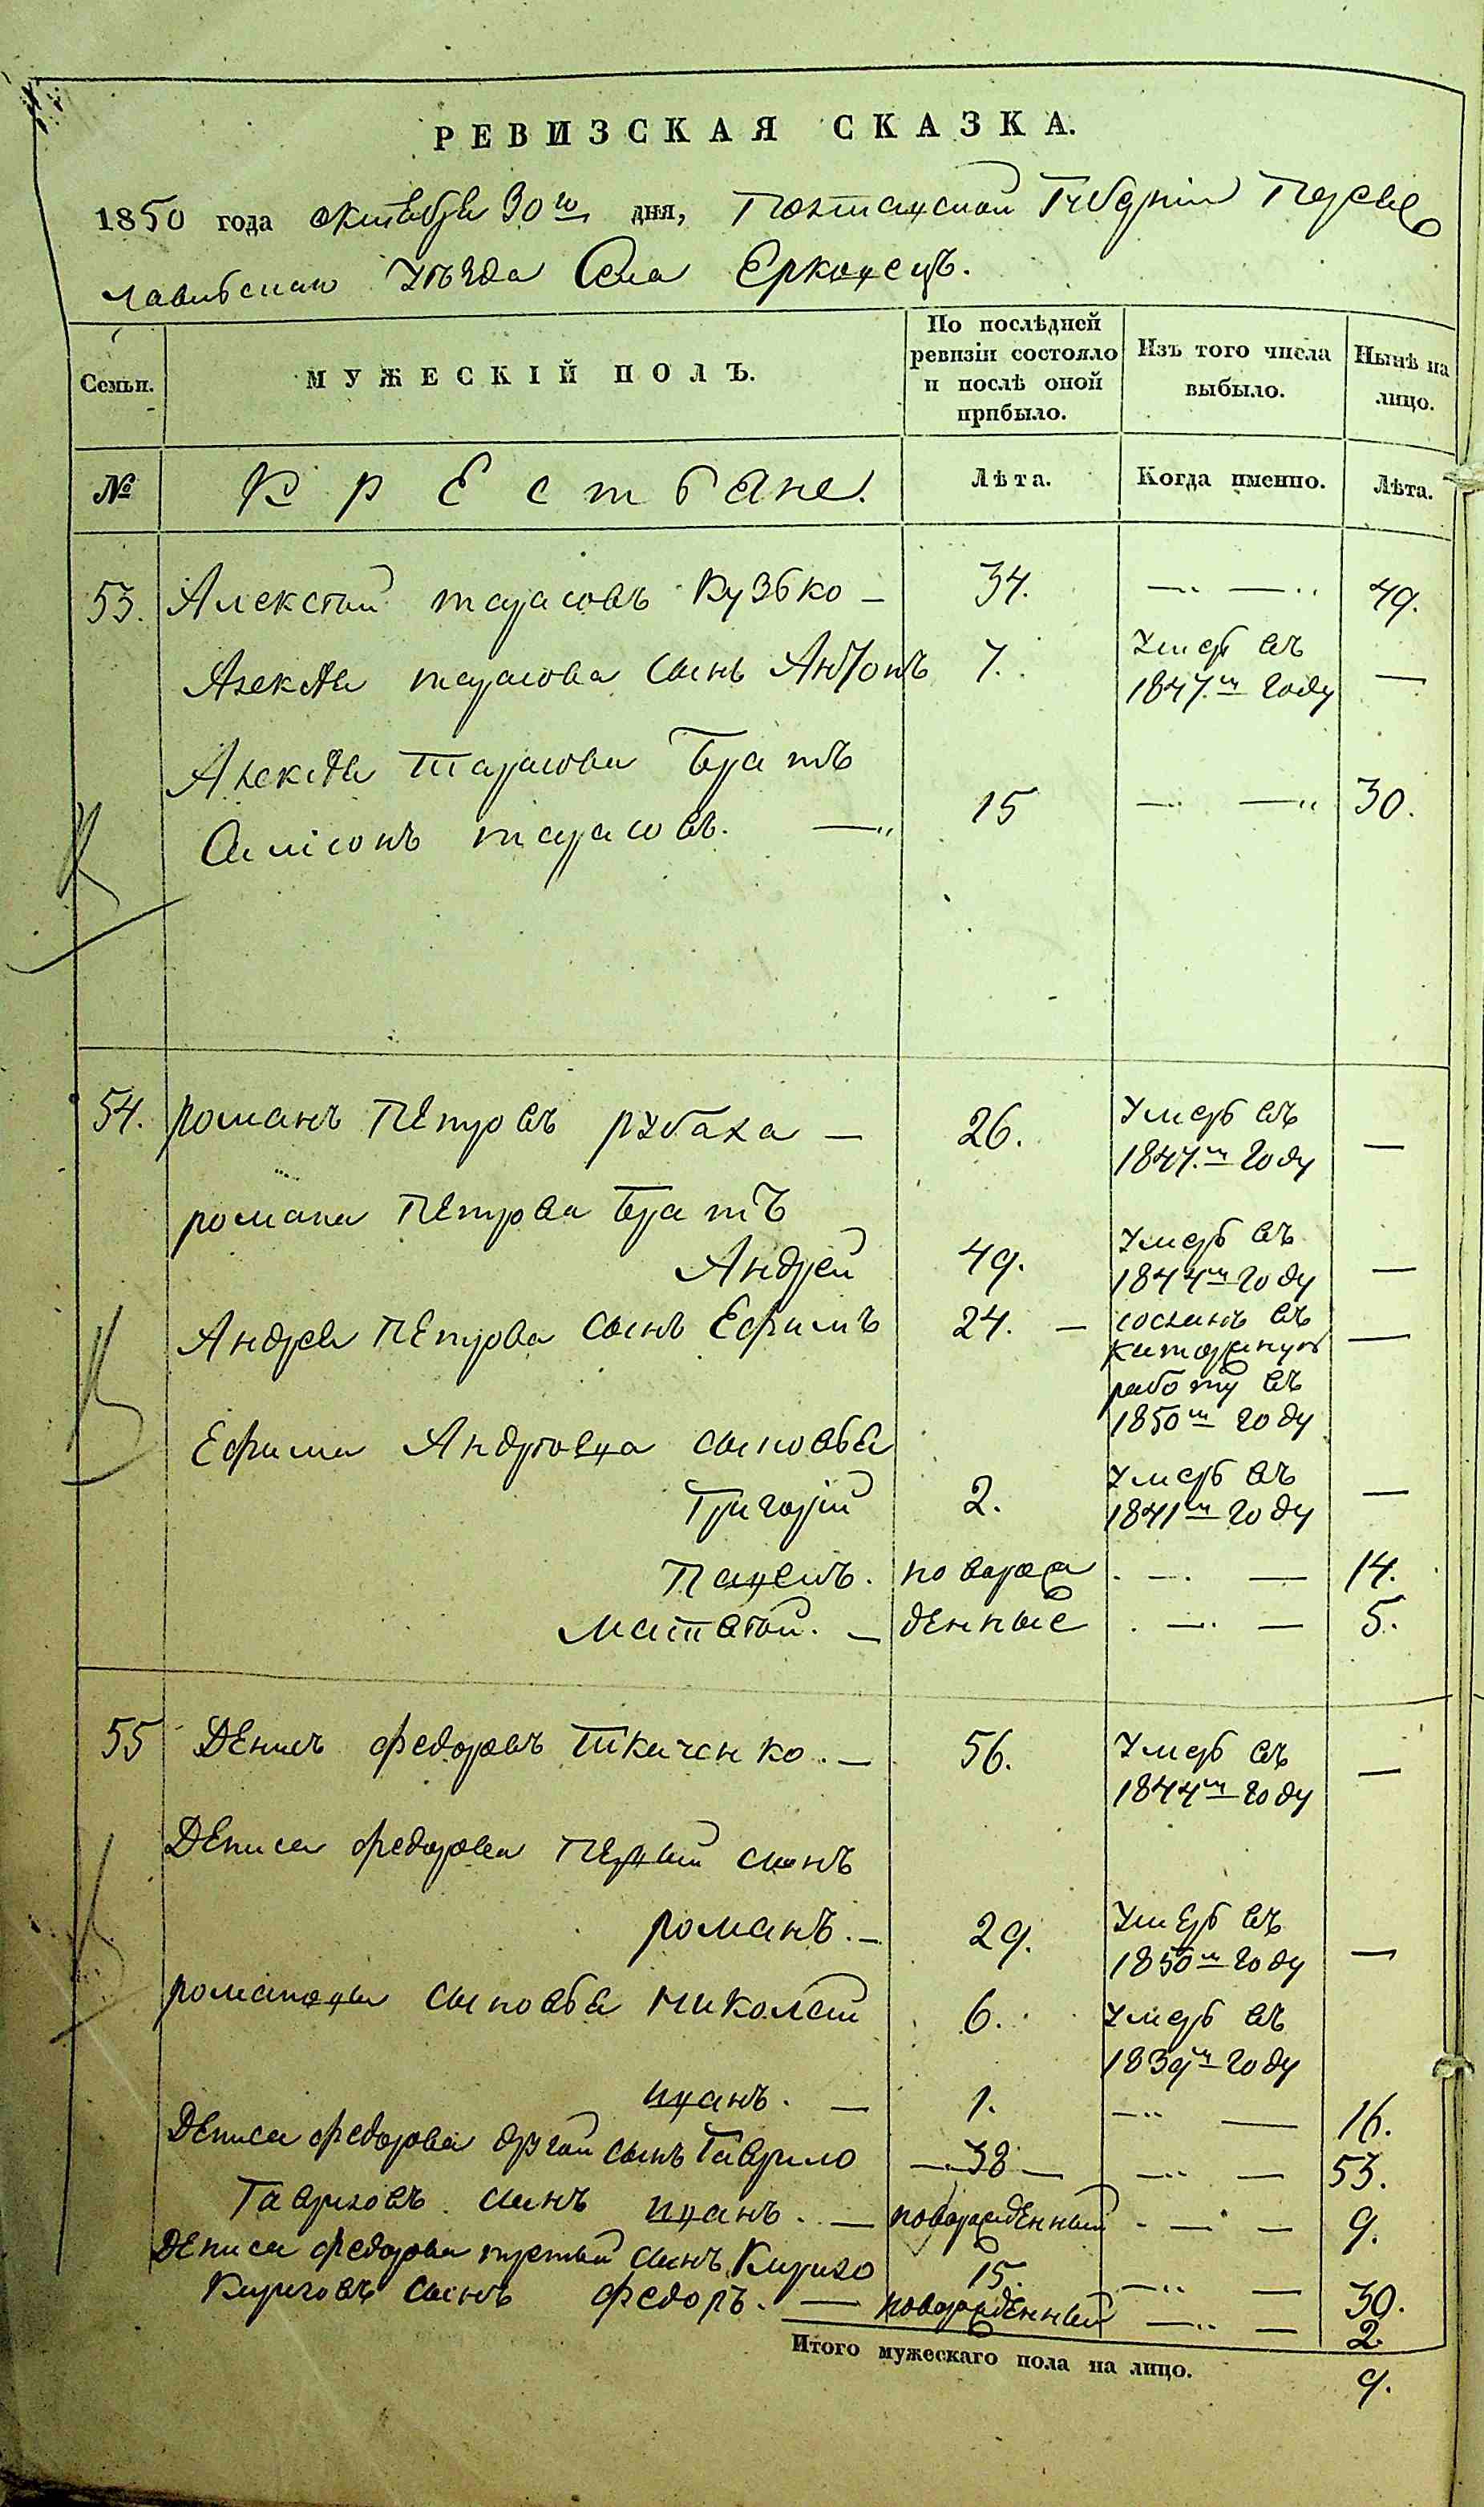 РЕВИЗСКАЯ СКАЗКА.
1850 года октября 30го дня, Полтавской Губерніи Перея
славльскаго Уѣзда Села Ерковецъ.
Семьи. МУЖЕСКІЙ ПОЛЪ. По послѣдней ревизіи состояло и послѣ оной прибыло. Изъ того числа выбыло. Нынѣ на лицо.
№ Крестьяне. Лѣта. Когда именно. Лѣта.
53. Алексѣй тарасовъ Кузько — 34. — — 49.
Алексѣя тарасова сынъ Антонъ 7. Умеръ въ 1847м году —
Алексѣя Тарасова Братъ
Симіонъ тарасовъ. — 15 — — 30.
54. романъ Петровъ рубаха — 26. Умеръ въ 1847.м году —
романа Петрова Братъ
Андрей 49. Умеръ въ 1844м году —
Андрея Петрова сынъ Ефимъ 24. — сосланъ въ каторжную работу въ 1850м году —
Ефима Андреева сыновья
Григорій 2. Умеръ въ 1841м году —
Павелъ. новорож — — 14.
Матвѣй. — денные — — 5.
55 Денисъ федоровъ Ткаченко. — 56. Умеръ въ 1844м году —
Дениса федорова Первый сынъ
романъ. — 29. Умеръ въ 1850м году —
романовы сыновья николай 6. Умеръ въ 1839м году
иванъ. — 1. — — 16.
Дениса федорова другой сынъ Гаврило — 38 — — — 53.
Гавриловъ сынъ иванъ. — новорожденный — — 9.
Дениса федорова третий сынъ Кирило 15. — — 30.
Кириловъ сынъ федоръ. — новорожденный — — 2.
Итого мужескаго пола на лицо. 9.